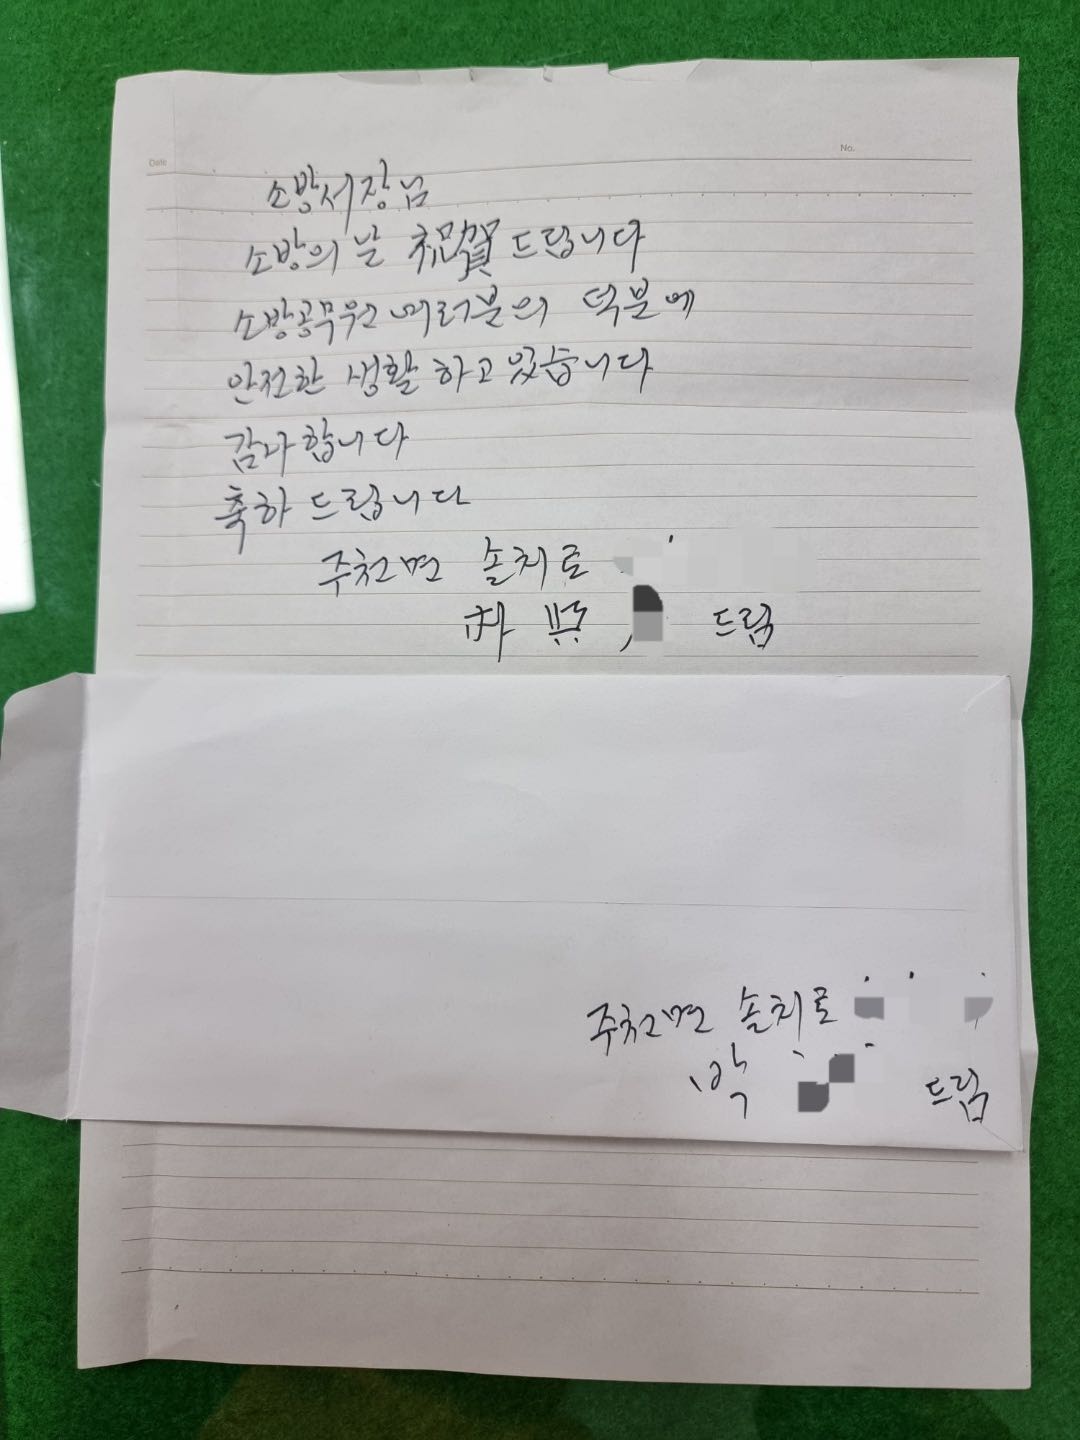 Date
No.
소방서장님
소방의 날 祝賀 드립니다
소방공무원 여러분의 덕분에
안전한 생활 하고 있습니다
감사합니다
축하 드립니다
주천면 솔치로
朴 드림
주천면 솔치로
박 드림